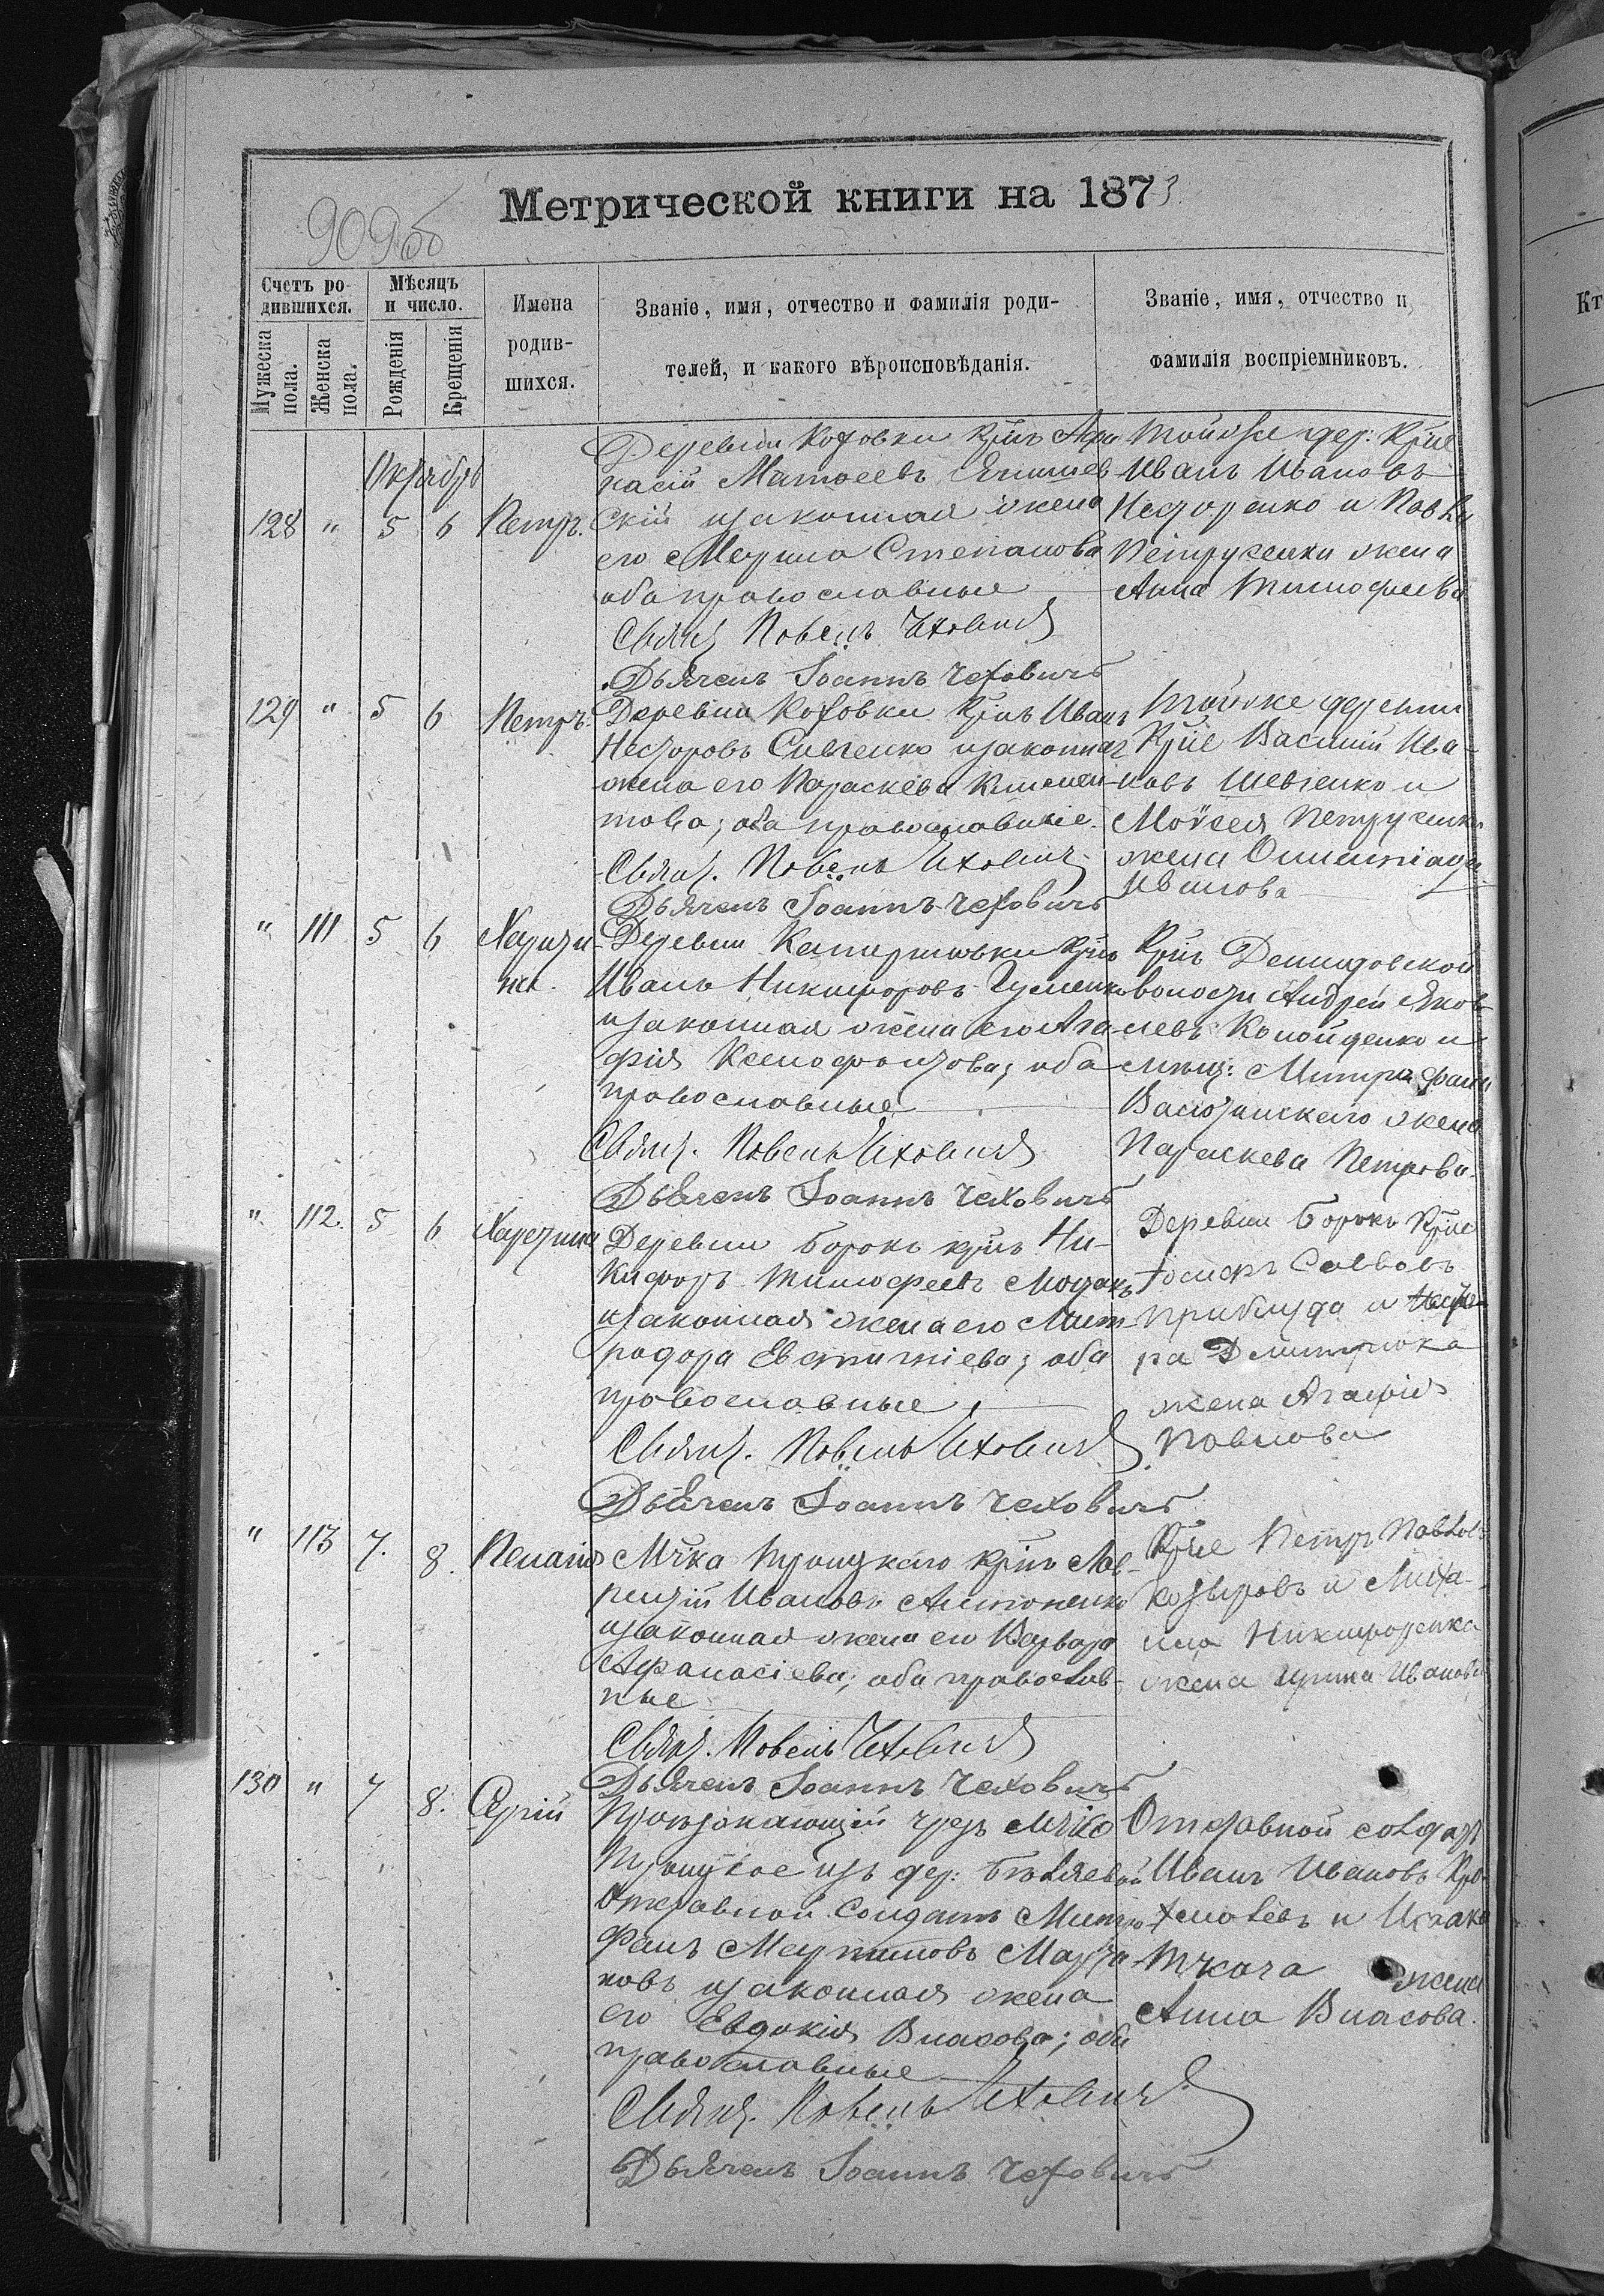 Метрической книги на 1873.
909об
Счетъ ро-
дившихся.
Мѣсяцъ
и число.
Мужеска
пола.
Женска
пола.
Рожденія
Крещенія
Имена
родив-
шихся.
Званіе, имя, отчество и фамилія роди-
телей, и какого вѣроисповѣданія.
Званіе, имя, отчество и
фамилія воспріемниковъ.
Октябрь
128 " 5 6 Петръ.
Деревни Котовки крнъ Афа
насій Матвеевъ
скій и законная жена
его Марина Степанова
оба православные
Свящ. Павелъ Чховичъ
Дьячекъ Іоаннъ Чеховичъ
Той же дер: Крне
Иванъ Ивановъ
Несторенко и Павла
Петрученки жена
Анна Тимофеева
129 " 5 6 Петръ.
Деревни Котовки Крнъ Иванъ
Несторовъ Савченко и законная
жена его Параскева Климен-
това; оба православные.
Свящ. Павелъ Чховичъ
Дьячекъ Іоаннъ Чеховичъ
Той же деревни
Крне Василій Ива-
новъ Шевченко и
Моѵсея Петрученки
жена
Иванова
" 111 5 6 Харити-
на.
Деревни Катериновки крнъ
Иванъ Никифоровъ Гуменко
и законная жена его Ага
фія Ксенофонтова; оба
православные
Свящ. Павелъ Чховичъ
Дьячекъ Іоаннъ Чеховичъ
Крнъ Демидовской
волости Андрей Яков-
левъ и
мѣщ: Митрофана
жена
Параскева Петрова.
" 112. 5 6 Харетина
Деревни Борокъ крнъ Ни-
кифоръ Тимофеевъ
и законная жена его Мит-
родора Евстигніева; оба
православные.
Свящ. Павелъ Чховичъ
Дьячекъ Іоаннъ Чеховичъ
Деревни Борокъ Крне
Іосифъ Саввовъ
Приблуда и
ра Дмитрюка
жена Агафія
Павлова
" 113 7. 8. Пелагія
Мѣчка Троицкаго крнъ Лав-
рентій Ивановъ Антоненко
и законная жена его Варвара
Афанасіева; оба православ-
ные
Свящ. Павелъ Чховичъ
Дьячекъ Іоаннъ Чеховичъ
Крне Петръ Павлов
Козыровъ и Миха-
ила Никифоренка
жена Ирина Иванова
130 " 7 8. Сергій
Проѣзжающій чрезъ мѣчко
Троицкое изъ дер: Бѣляевой
Отставной Солдатъ Митро
фанъ Мартиновъ
новъ и законная жена
его Евдокія Власова; оба
православные
Свящ. Павелъ Чховичъ
Дьячекъ Іоаннъ Чеховичъ
Отставной солдатъ
Иванъ Ивановъ
и Исаака
Ткача жена
Анна Власова.